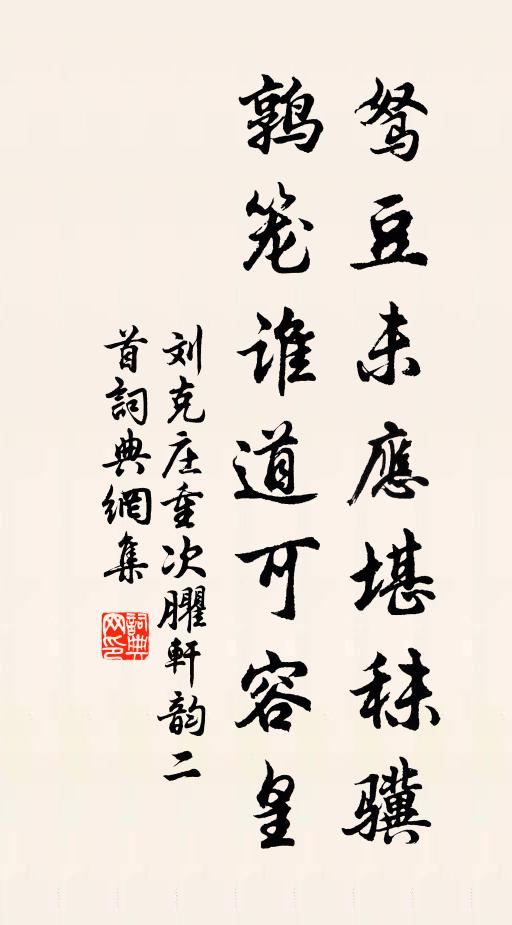 驽豆未應堪秣驥
鹑笼谁道可容皇
刘克庄重次臞軒韵二
首詞典網集
詞典网印